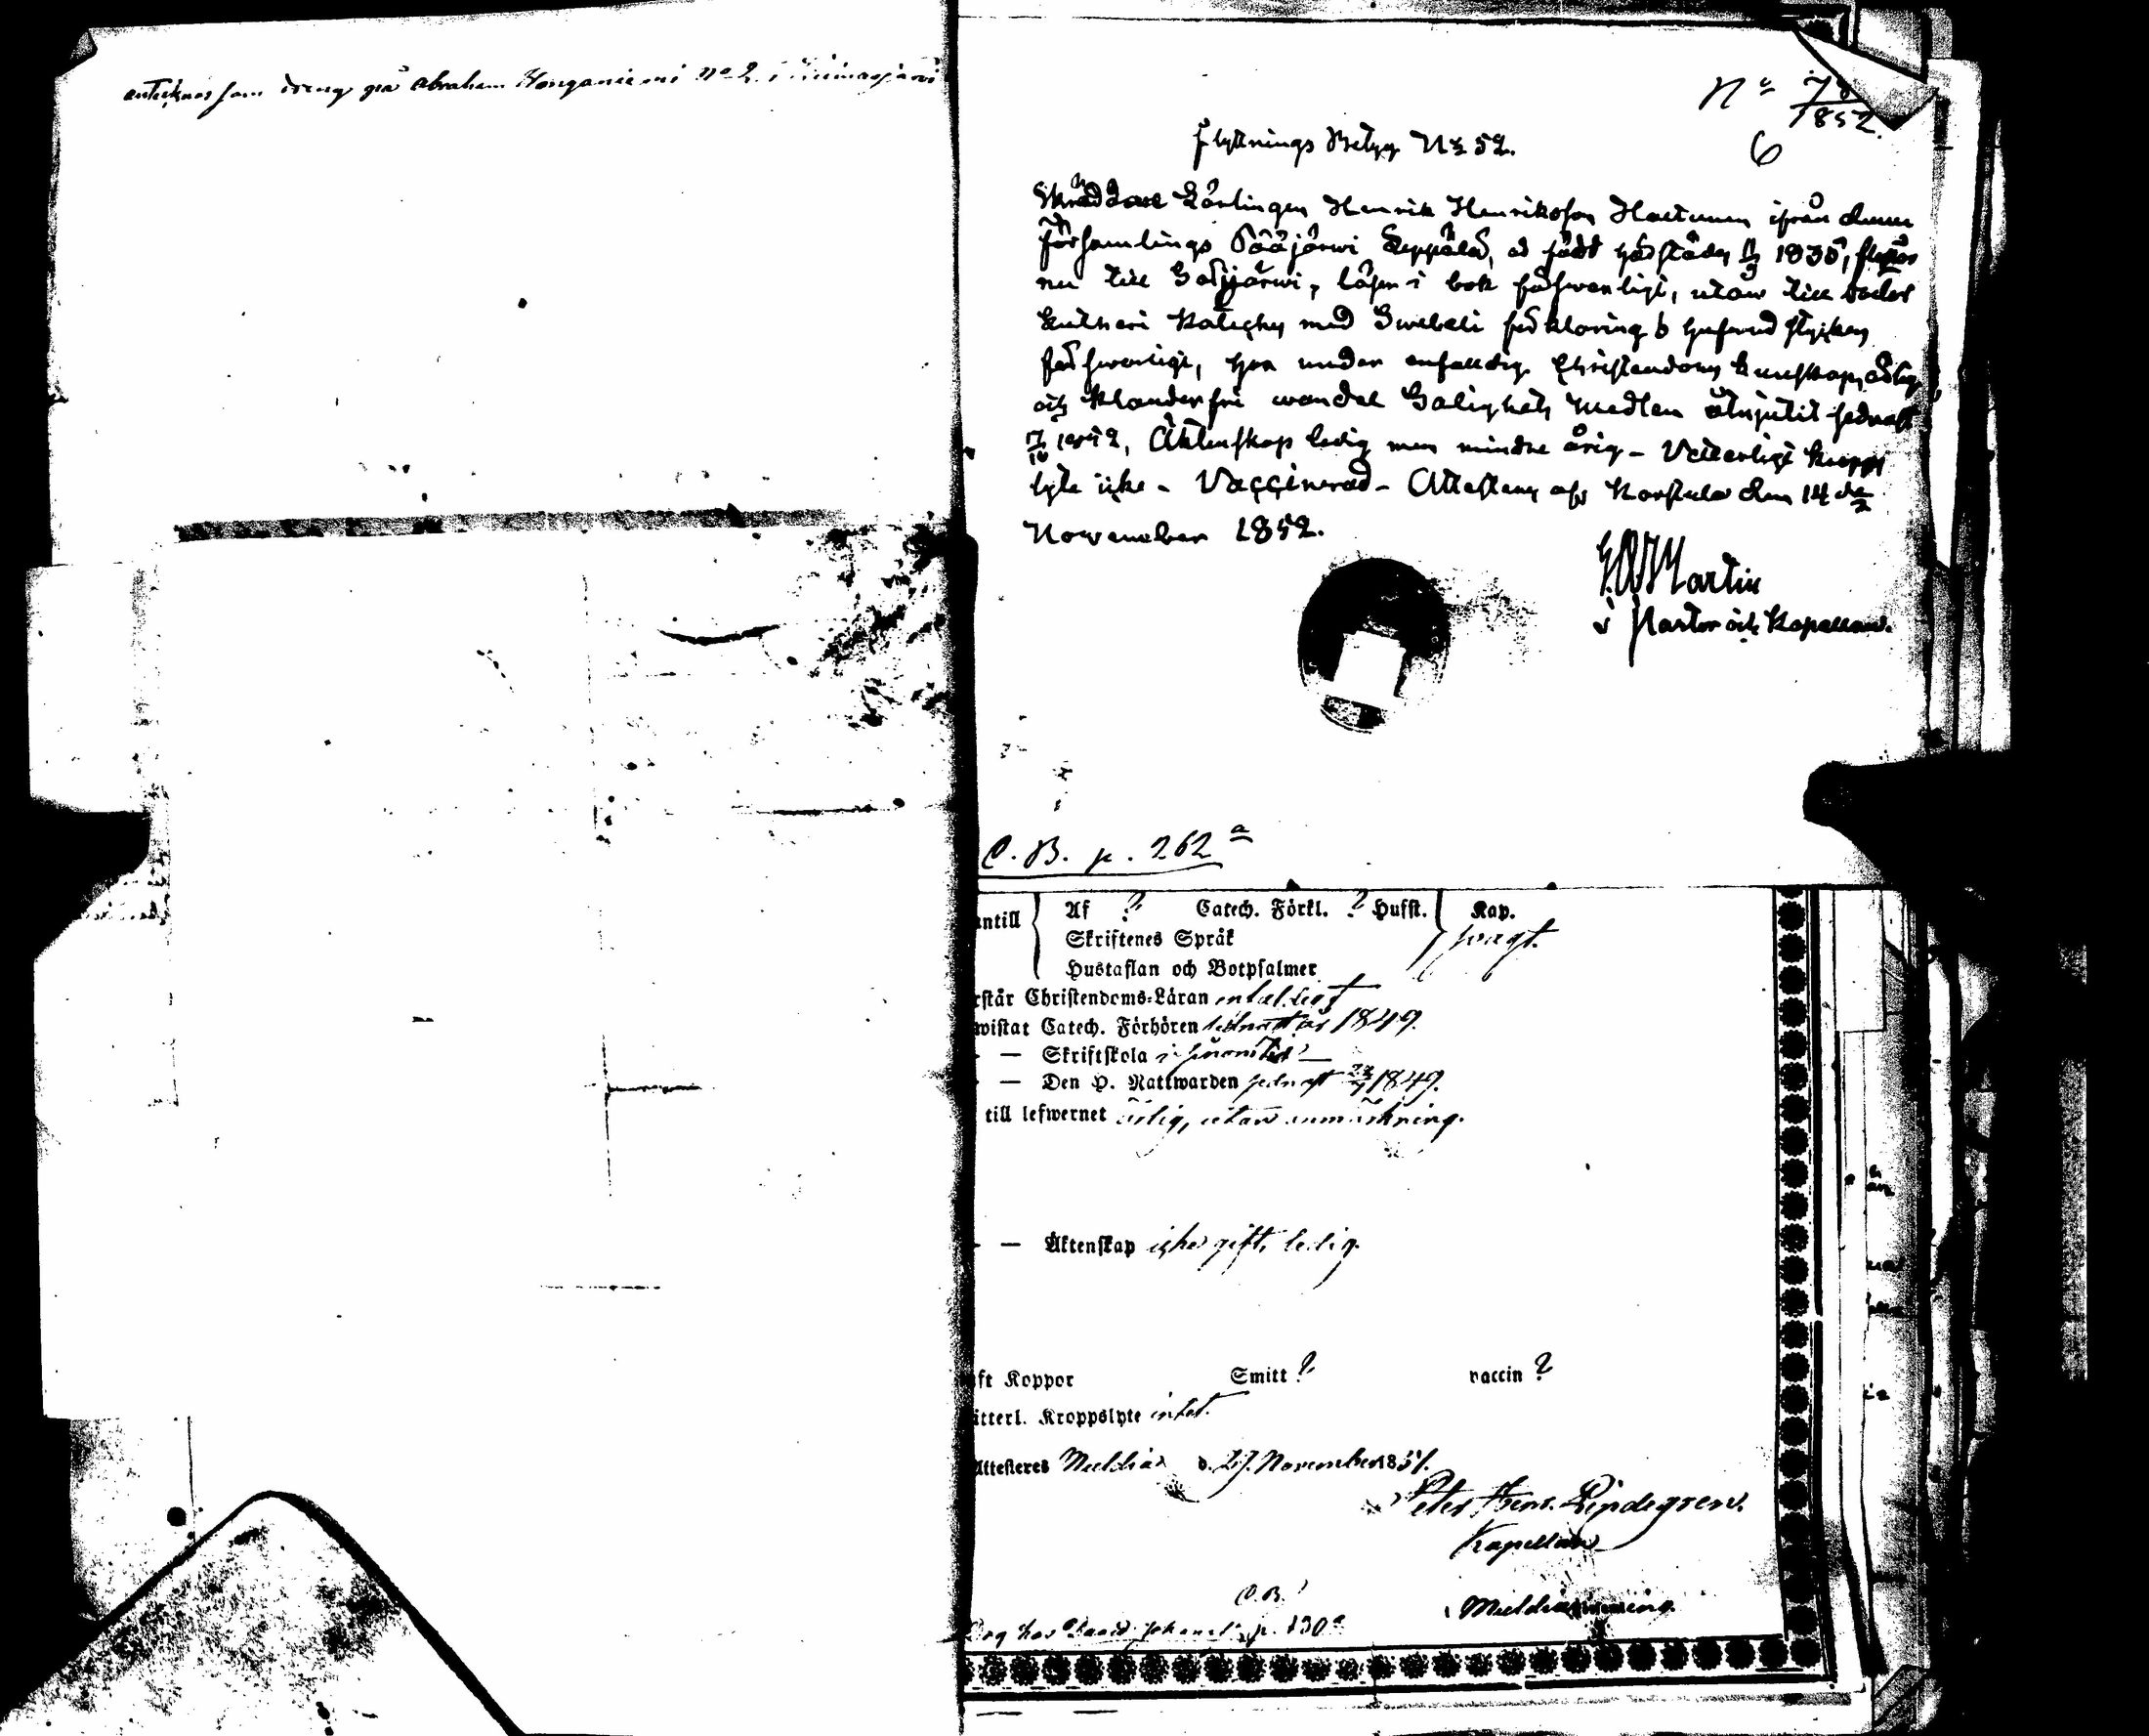 antecknas som dreng på Abraham Honganiemi No 2 i Kiimasjärvi
No 78/1852.
6
Flyttnings Betyg No 52.
Skräddare Lärlingen Henrik Henriksson Hartunen ifrån denna
församlings Pääjärwi Leppälä, är född härstädes 1835, flyttar
nu till Saijärwi, läser i bok försvarligt, utan till
Lutheri Kateches med Swebeli förklaring
försvarligt, har under enfaldig Christendoms kunskap, ärlig
och klanderfri wandel Salighets Medlen åtnjutit sednast
Äktenskap ledig men mindre årig - Vetterligt kropps
lyte icke - Vaccinerad - Attesteras af Karstula den 14de
November 1852.
Martin
v. Pastor och Kapellan.
C. B. p. 262 a
antill Af ? Catech. Förkl. ? Husst. Kap.
svagt.
Skriftenes Språk
Hustaflan och Botpsalmer
rstår Christendoms-Läran enfaldigt
wistat Catech. Förhören sednast år 1849.
— Skriftskola i
— Den H. Nattwarden sednast 1849.
till lefwernet ärlig, utan anmärkning.
— Äktenskap icke gift, ledig.
ft Koppor Smitt ? vaccin ?
itterl. Kroppslyte intet.
Attesteras Multia d. 27. November 1851.
Peter Henr. Lindegren.
Kapellan
C. B.
hos p. 130 a